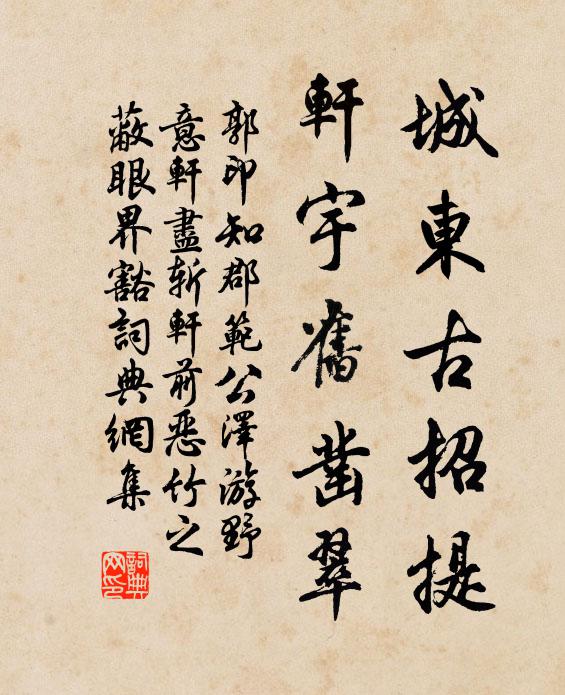 城東古招提
軒宇舊鑿翠
郭印知郡範公澤游野
意軒盡斩軒前惡竹之
蔽眼界豁詞典網集
詞典网印